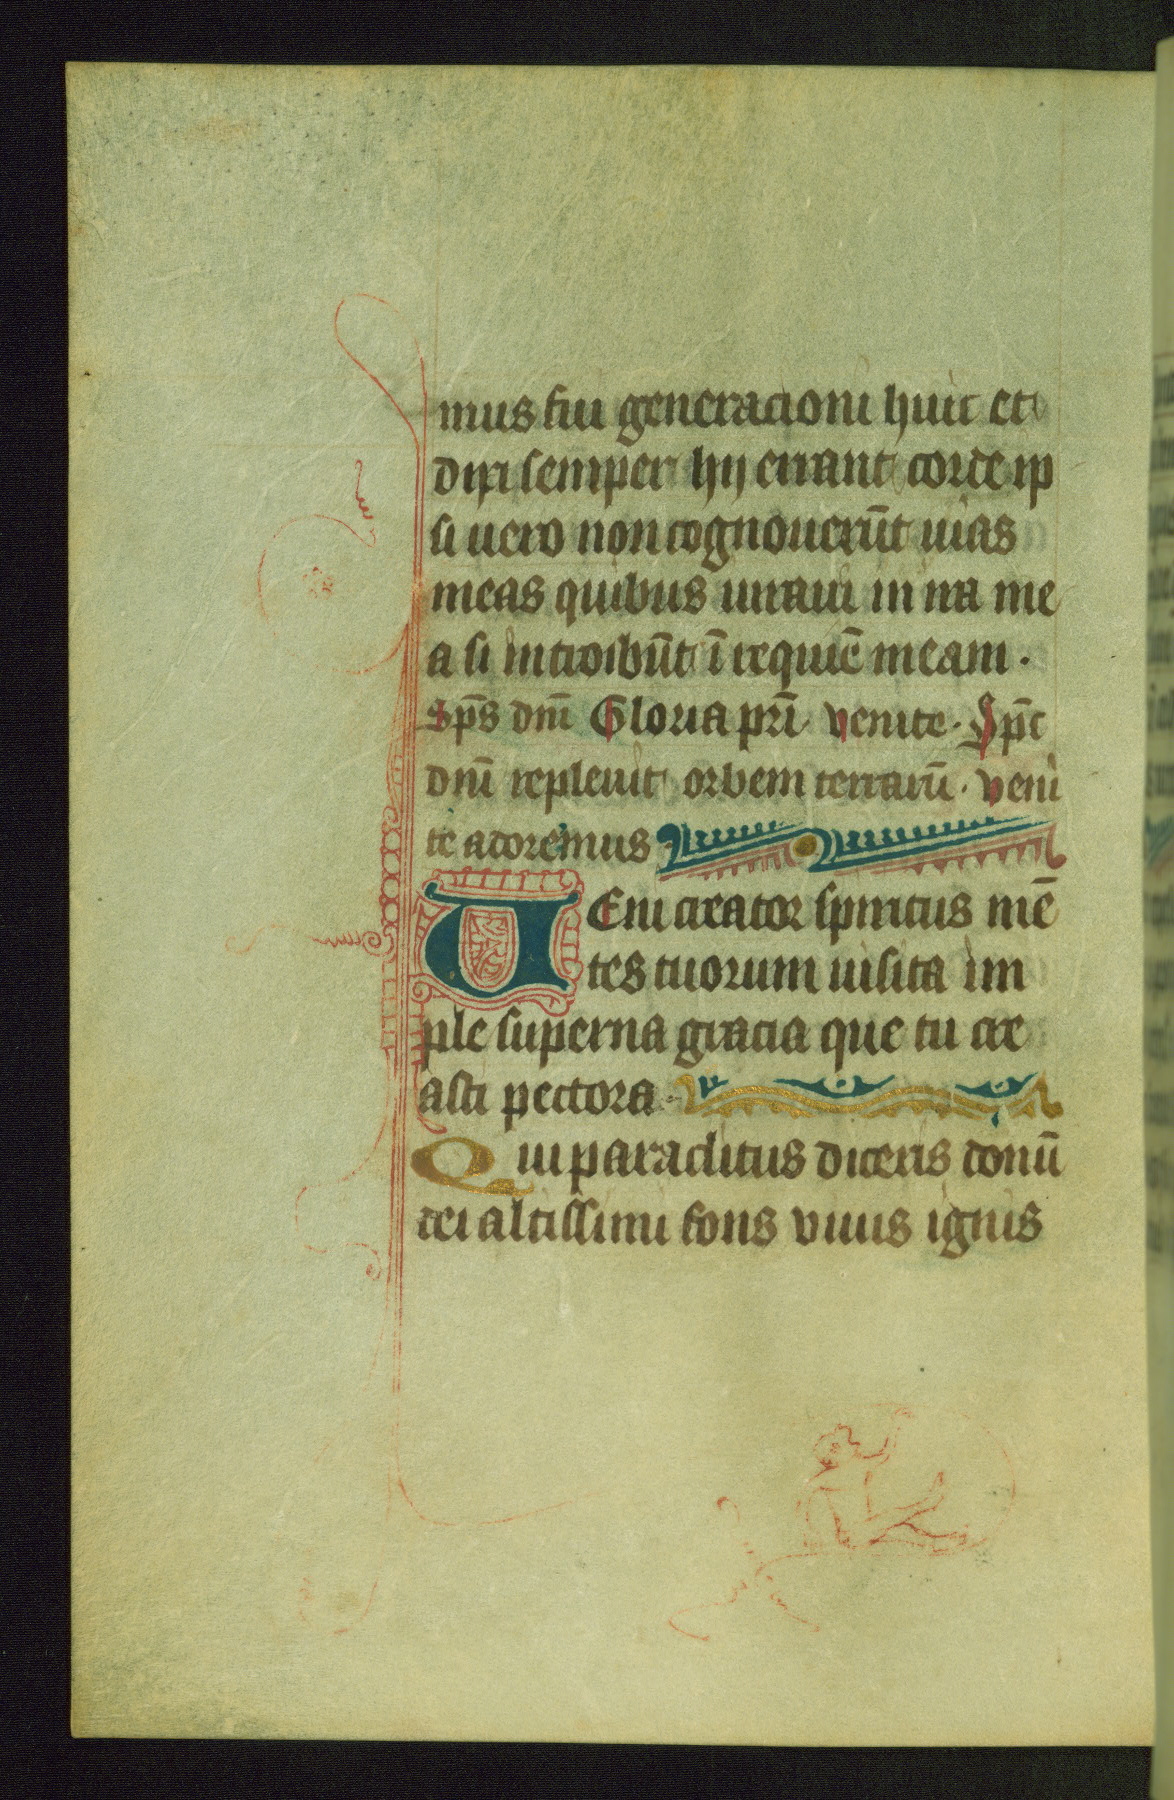 mus fui generacioni huic et
dixi semper hij errant corde ip
si uero non cognouerūt uias
meas quibus iuraui in ira me
a si introibūt ī requiē meam.
Sp̄s dn̄i Gloria pr̄i. venite. Sp̄c
dn̄i repleuit orbem terrarū. veni
te adoremus
UEni creator spiritus mē
tes tuorum uisita im
ple superna gracia que tu cre
asti pectora.
Qui paraclitus diceris donū
dei altissimi fons viuus ignis